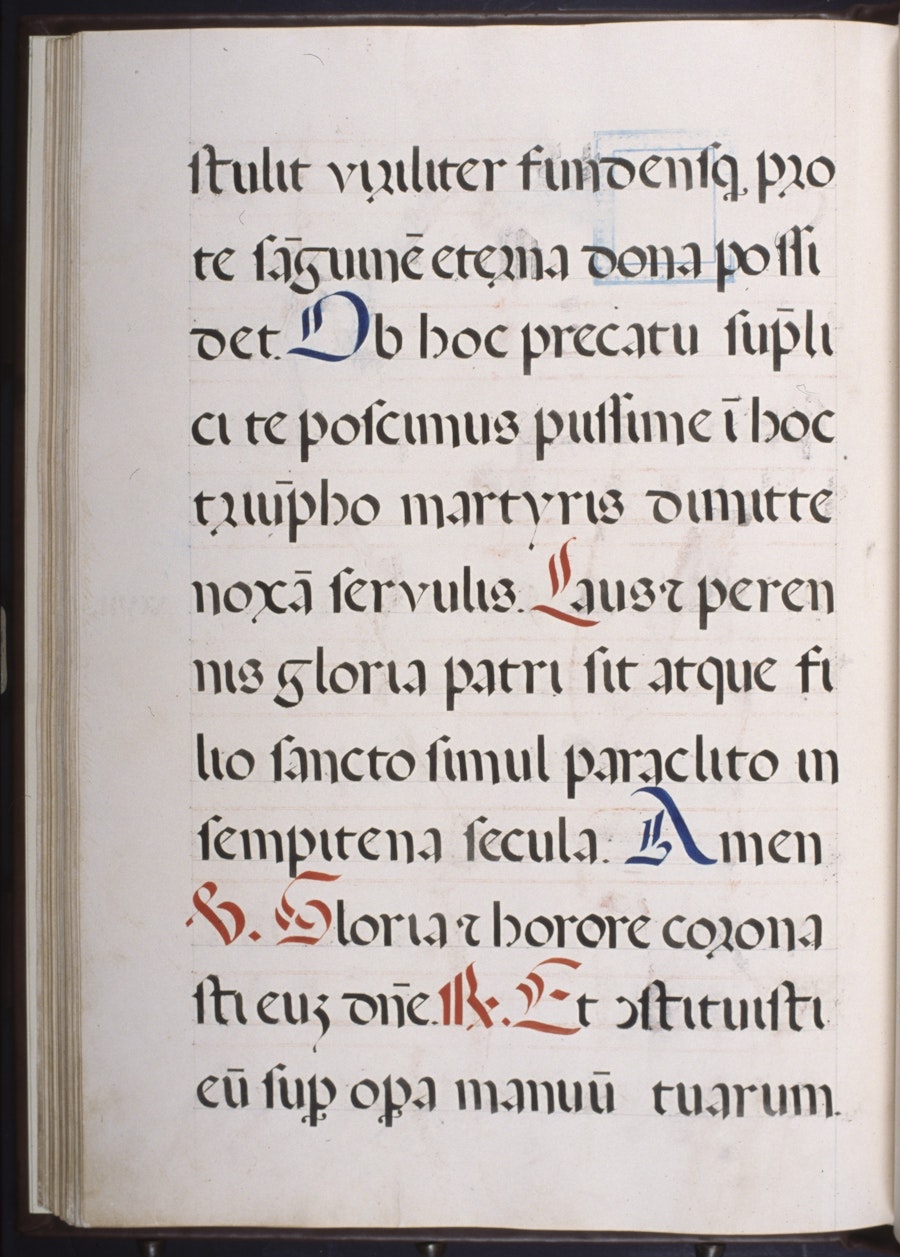 stulit viriliter fundensq₃ pro
te sāguinē eterna dona possi
det. Ob hoc precatu sup̄li
ci te poscimus piissime ī hoc
triūpho martyris dimitte
noxā servulis. Laus ⁊ peren
nis gloria patri sit atque fi
lio sancto simul paraclito in
sempitena secula. Amen
℣. Gloria ⁊ horore corona
sti euꝫ dn̄e. ℟. Et ↄstituisti
eū suꝑ oꝑa manuū tuarum.